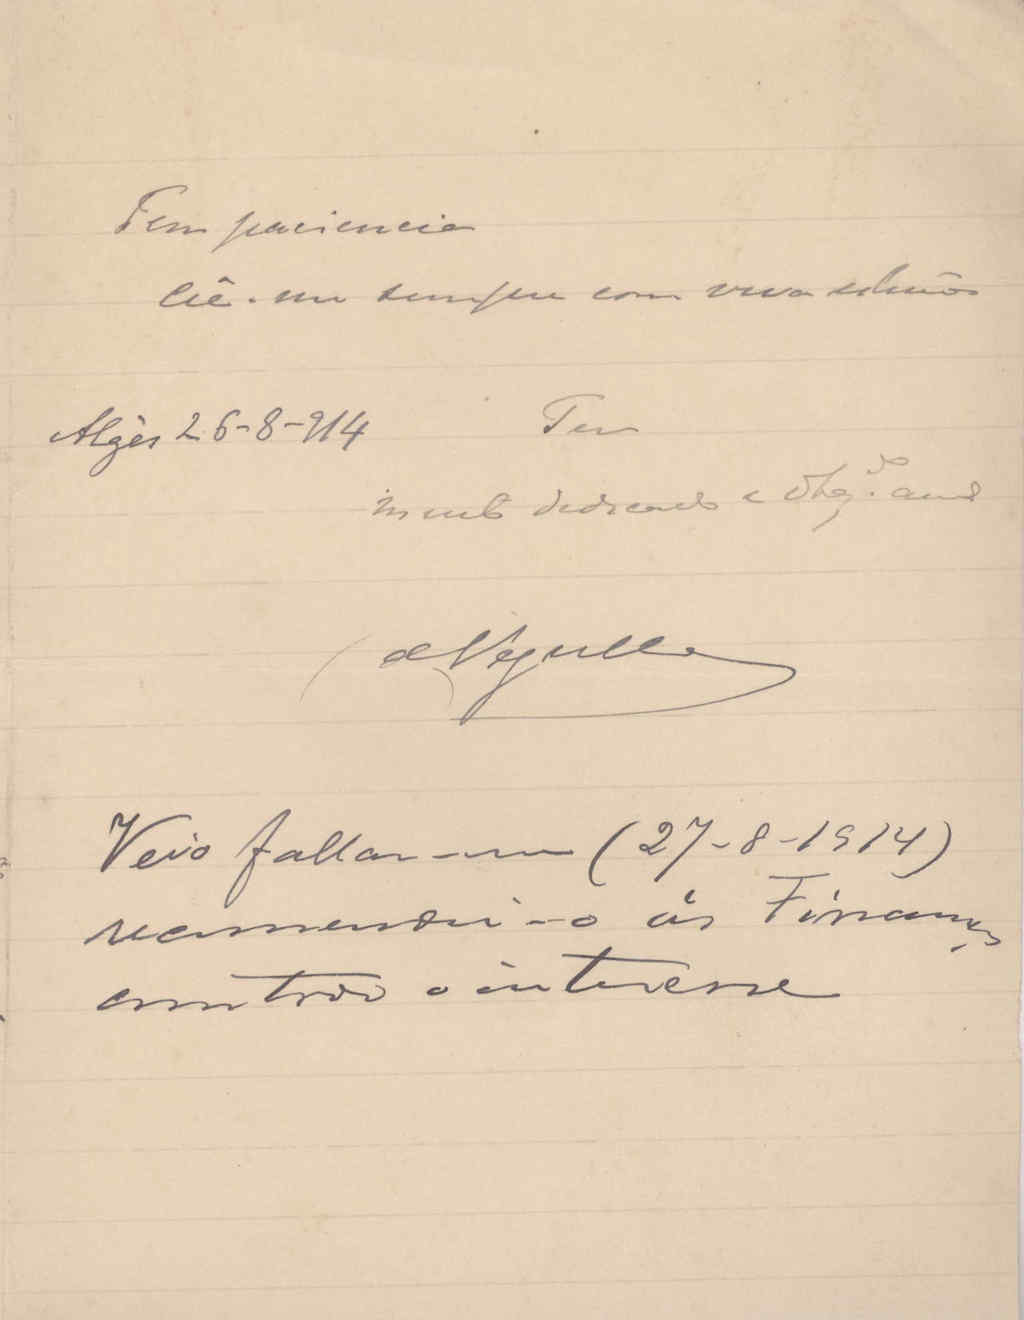 Tem paciencia
Crê-me sempre com viva estima
Algés 26-8-914
Teu
muito dedicado e obg.do am.o
Veio fallar-me (27-8-1914)
recomendei-o ás Finanças
com todo o interesse